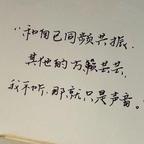 "和自己同频共振,
其他的万籁芸芸,
我不听,那就只是声音。"